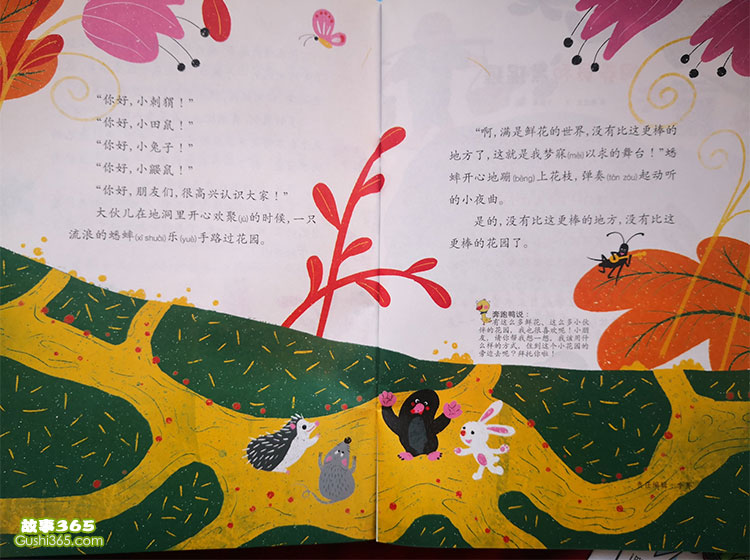 “你好，小刺猬！”
“你好，小田鼠！”
“你好，小兔子！”
“你好，小鼹鼠！”
“你好，朋友们，很高兴认识大家！”
大伙儿在地洞里开心欢聚(jù)的时候，一只
流浪的蟋蟀(xī shuài)乐(yuè)手路过花园。
“啊，满是鲜花的世界，没有比这更棒的
地方了，这就是我梦寐(mèi)以求的舞台！”蟋
蟀开心地蹦(bèng)上花枝，弹奏(tán zòu)起动听
的小夜曲。
是的，没有比这更棒的地方，没有比这
更棒的花园了。
奔跑鸭说：
有这么多鲜花、这么多小伙
伴的花园，我也很喜欢呢！小朋
友，请你帮我想一想，我该用什
么样的方式，住到这个小花园的
旁边去呢？拜托你啦！
故事365
Gushi365.com